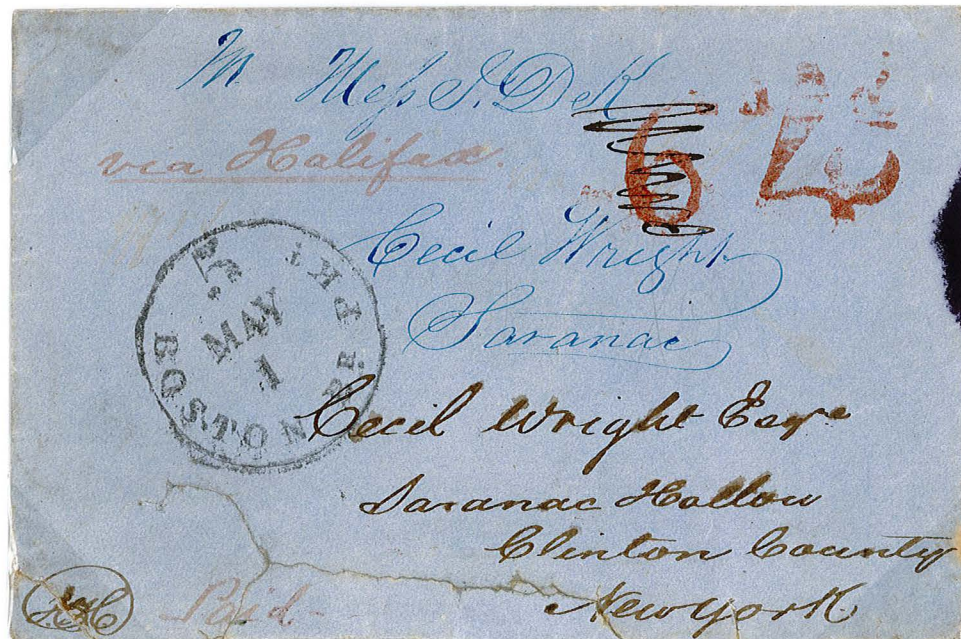 Mess J. DeK
via Halifax.
6
Cecil Wright
Saranac
BOSTON BR. PKT
MAY
1
Cecil Wright Esqre
Saranac Hollow
Clinton County
New York
Paid